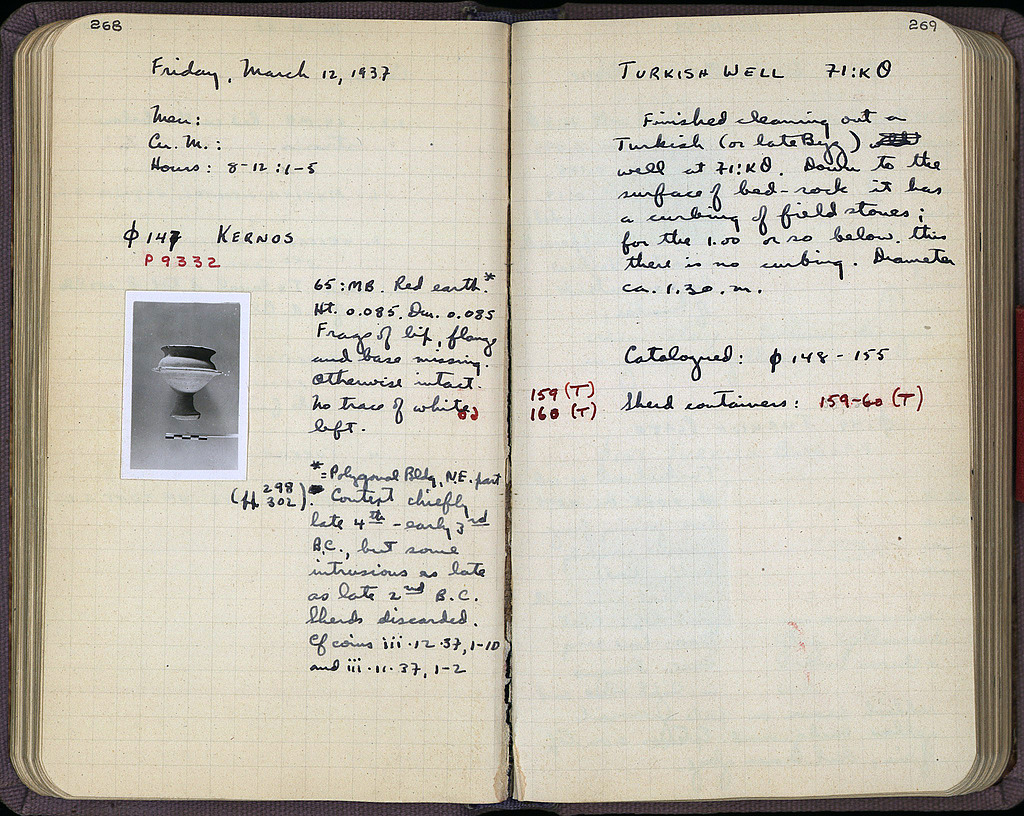 268
Friday, March 12, 1937
Men:
Cu. M.:
Hours: 8-12 : 1-5
φ 147 KERNOS
P 9332
65:MB. Red earth.*
Ht. 0.085. Dm. 0.085
Frags of lip, flange
and base missing.
Otherwise intact.
No trace of white
left.
* = Polygonal Bldg, NE. part
(ff. 298
302). Context chiefly
late 4th - early 3rd
B.C., but some
intrusions as late
as late 2nd B.C.
Sherds discarded.
Cf coins iii·12·37, 1-10
and iii·11·37, 1-2
269
TURKISH WELL 71:KΘ
Finished cleaning out a
Turkish (or late Byz)
well at 71:KΘ. Down to the
surface of bed-rock it has
a curbing of field stones;
for the 1.00 or so below this
there is no curbing. Diameter
ca. 1.30. m.
Catalogued: φ 148-155
159 (T)
160 (T)
Sherd containers: 159-60 (T)